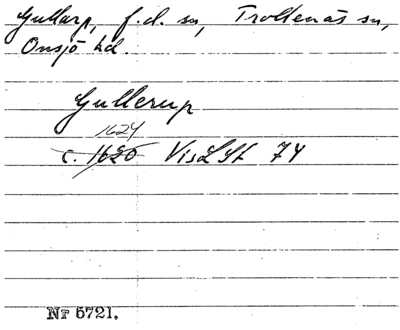 Gullarp, f.d. sn, Trollenäs sn,
Onsjö hd.
Gullerup
1624
c. 1620 VisLSt 74
Nr 5721.